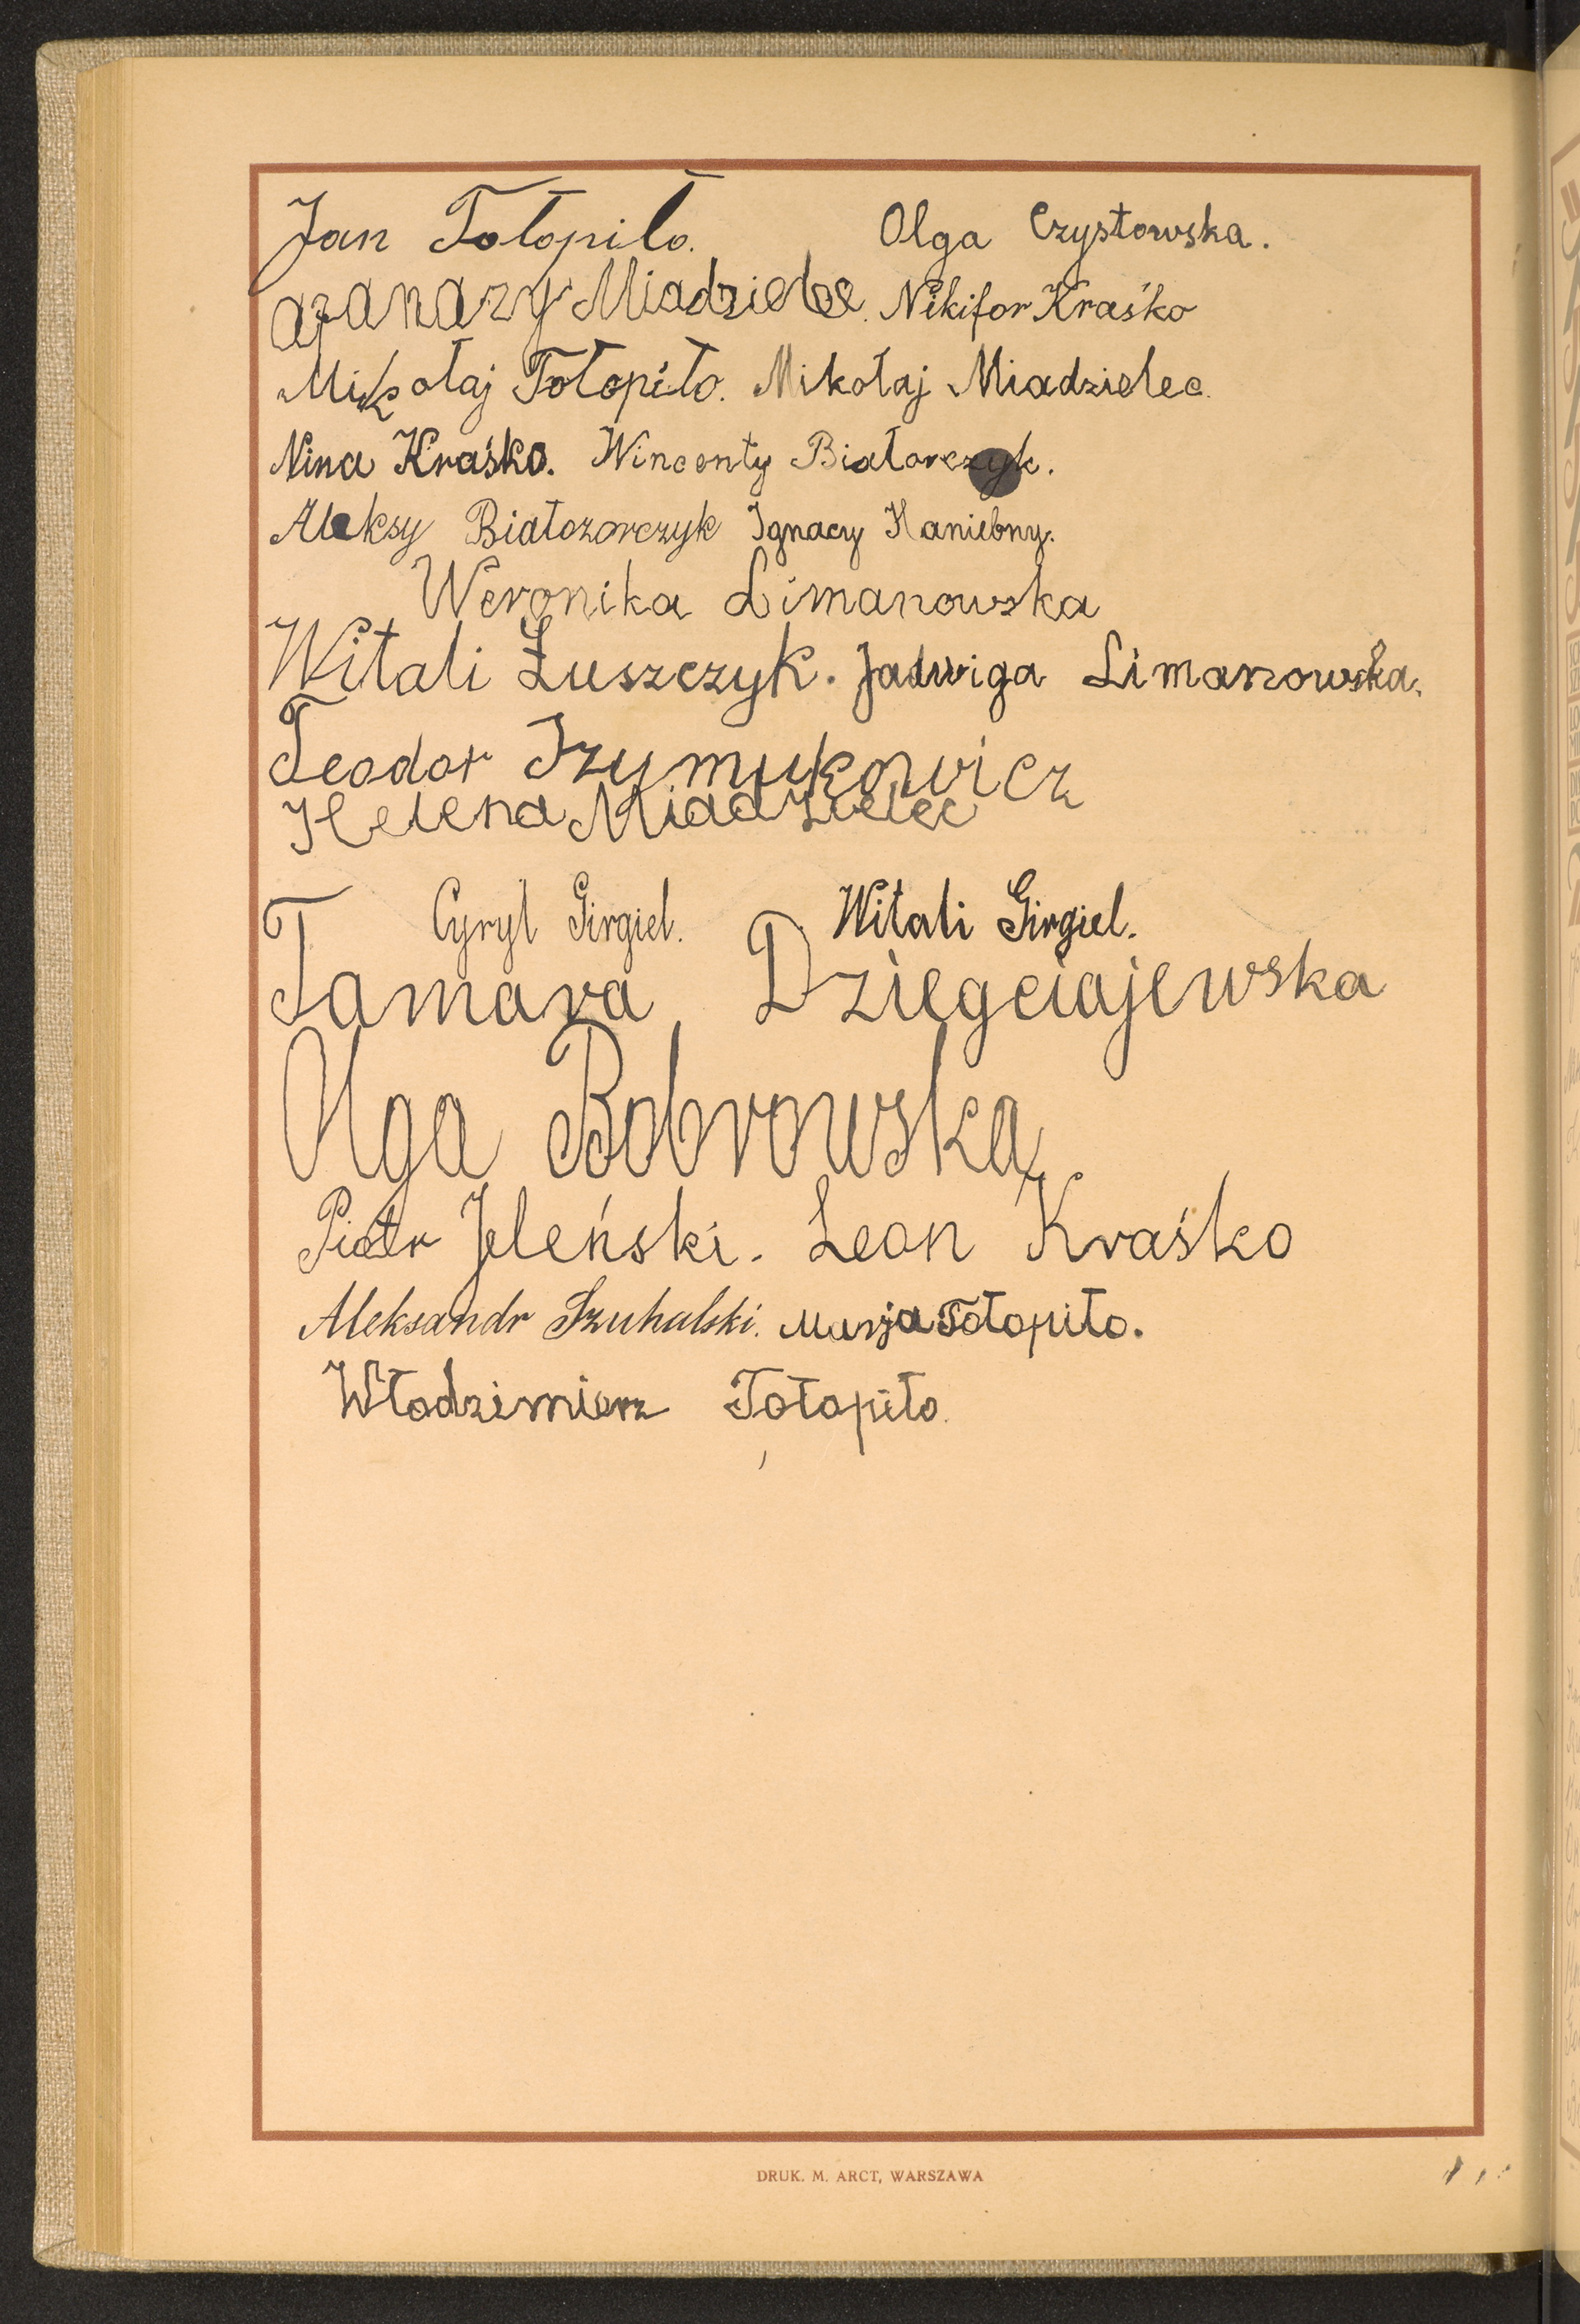 Jan Tołopiło. Olga Czystowska.
Afanazy Miadzielec. Nikifor Kraśko
Mikołaj Tołopiło. Mikołaj Miadzielec.
Nina Kraśko. Wincenty Białorczyk.
Aleksy Białozorczyk Ignacy Haniebny.
Weronika Limanowska
Witali Łuszczyk. Jadwiga Limanowska.
Teodor Szymukowicz
Helena Miadzielec
Cyryl Girgiel. Witali Girgiel.
Tamara Dziegciajewska
Olga Bobrowska
Piotr Jeleński. Leon Kraśko
Aleksandr Szuhalski. Marja Tołopiło.
Włodzimierz Tołopiło.
DRUK. M. ARCT, WARSZAWA